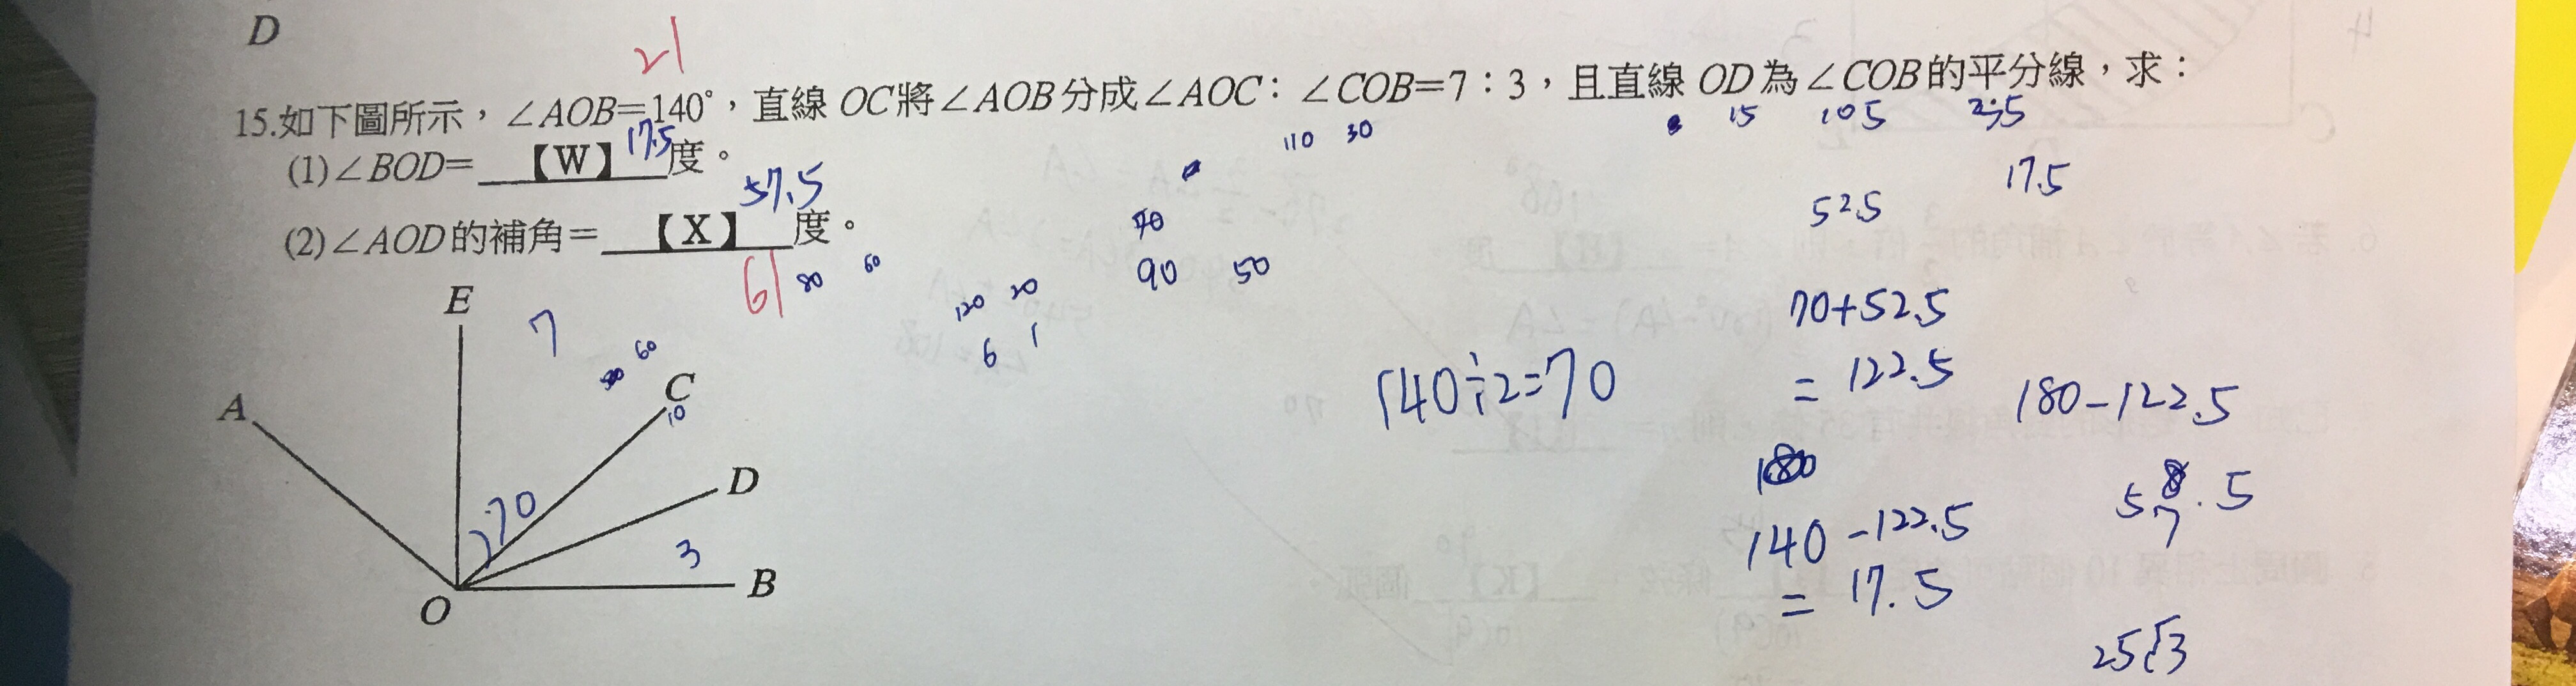 D
21
15.如下圖所示，∠AOB=140°，直線 OC將∠AOB分成∠AOC：∠COB=7：3，且直線 OD為∠COB的平分線，求：
110 30 15 105
(1)∠BOD=【W】度。
17.5
17.5
57.5
52.5
(2)∠AOD的補角=【X】度。
61
80 60
120 20
6 1
90 50
E
7
60
C
10
A
D
70
3
B
O
140÷2=70
70+52.5
= 122.5
180-122.5
57.5
140-122.5
= 17.5
25√3